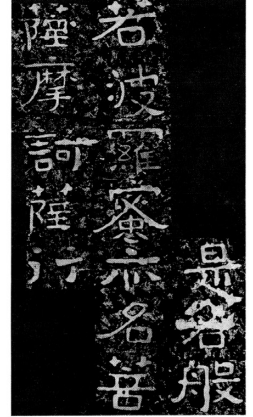 是名般
若波羅蜜亦名菩
薩摩訶薩行